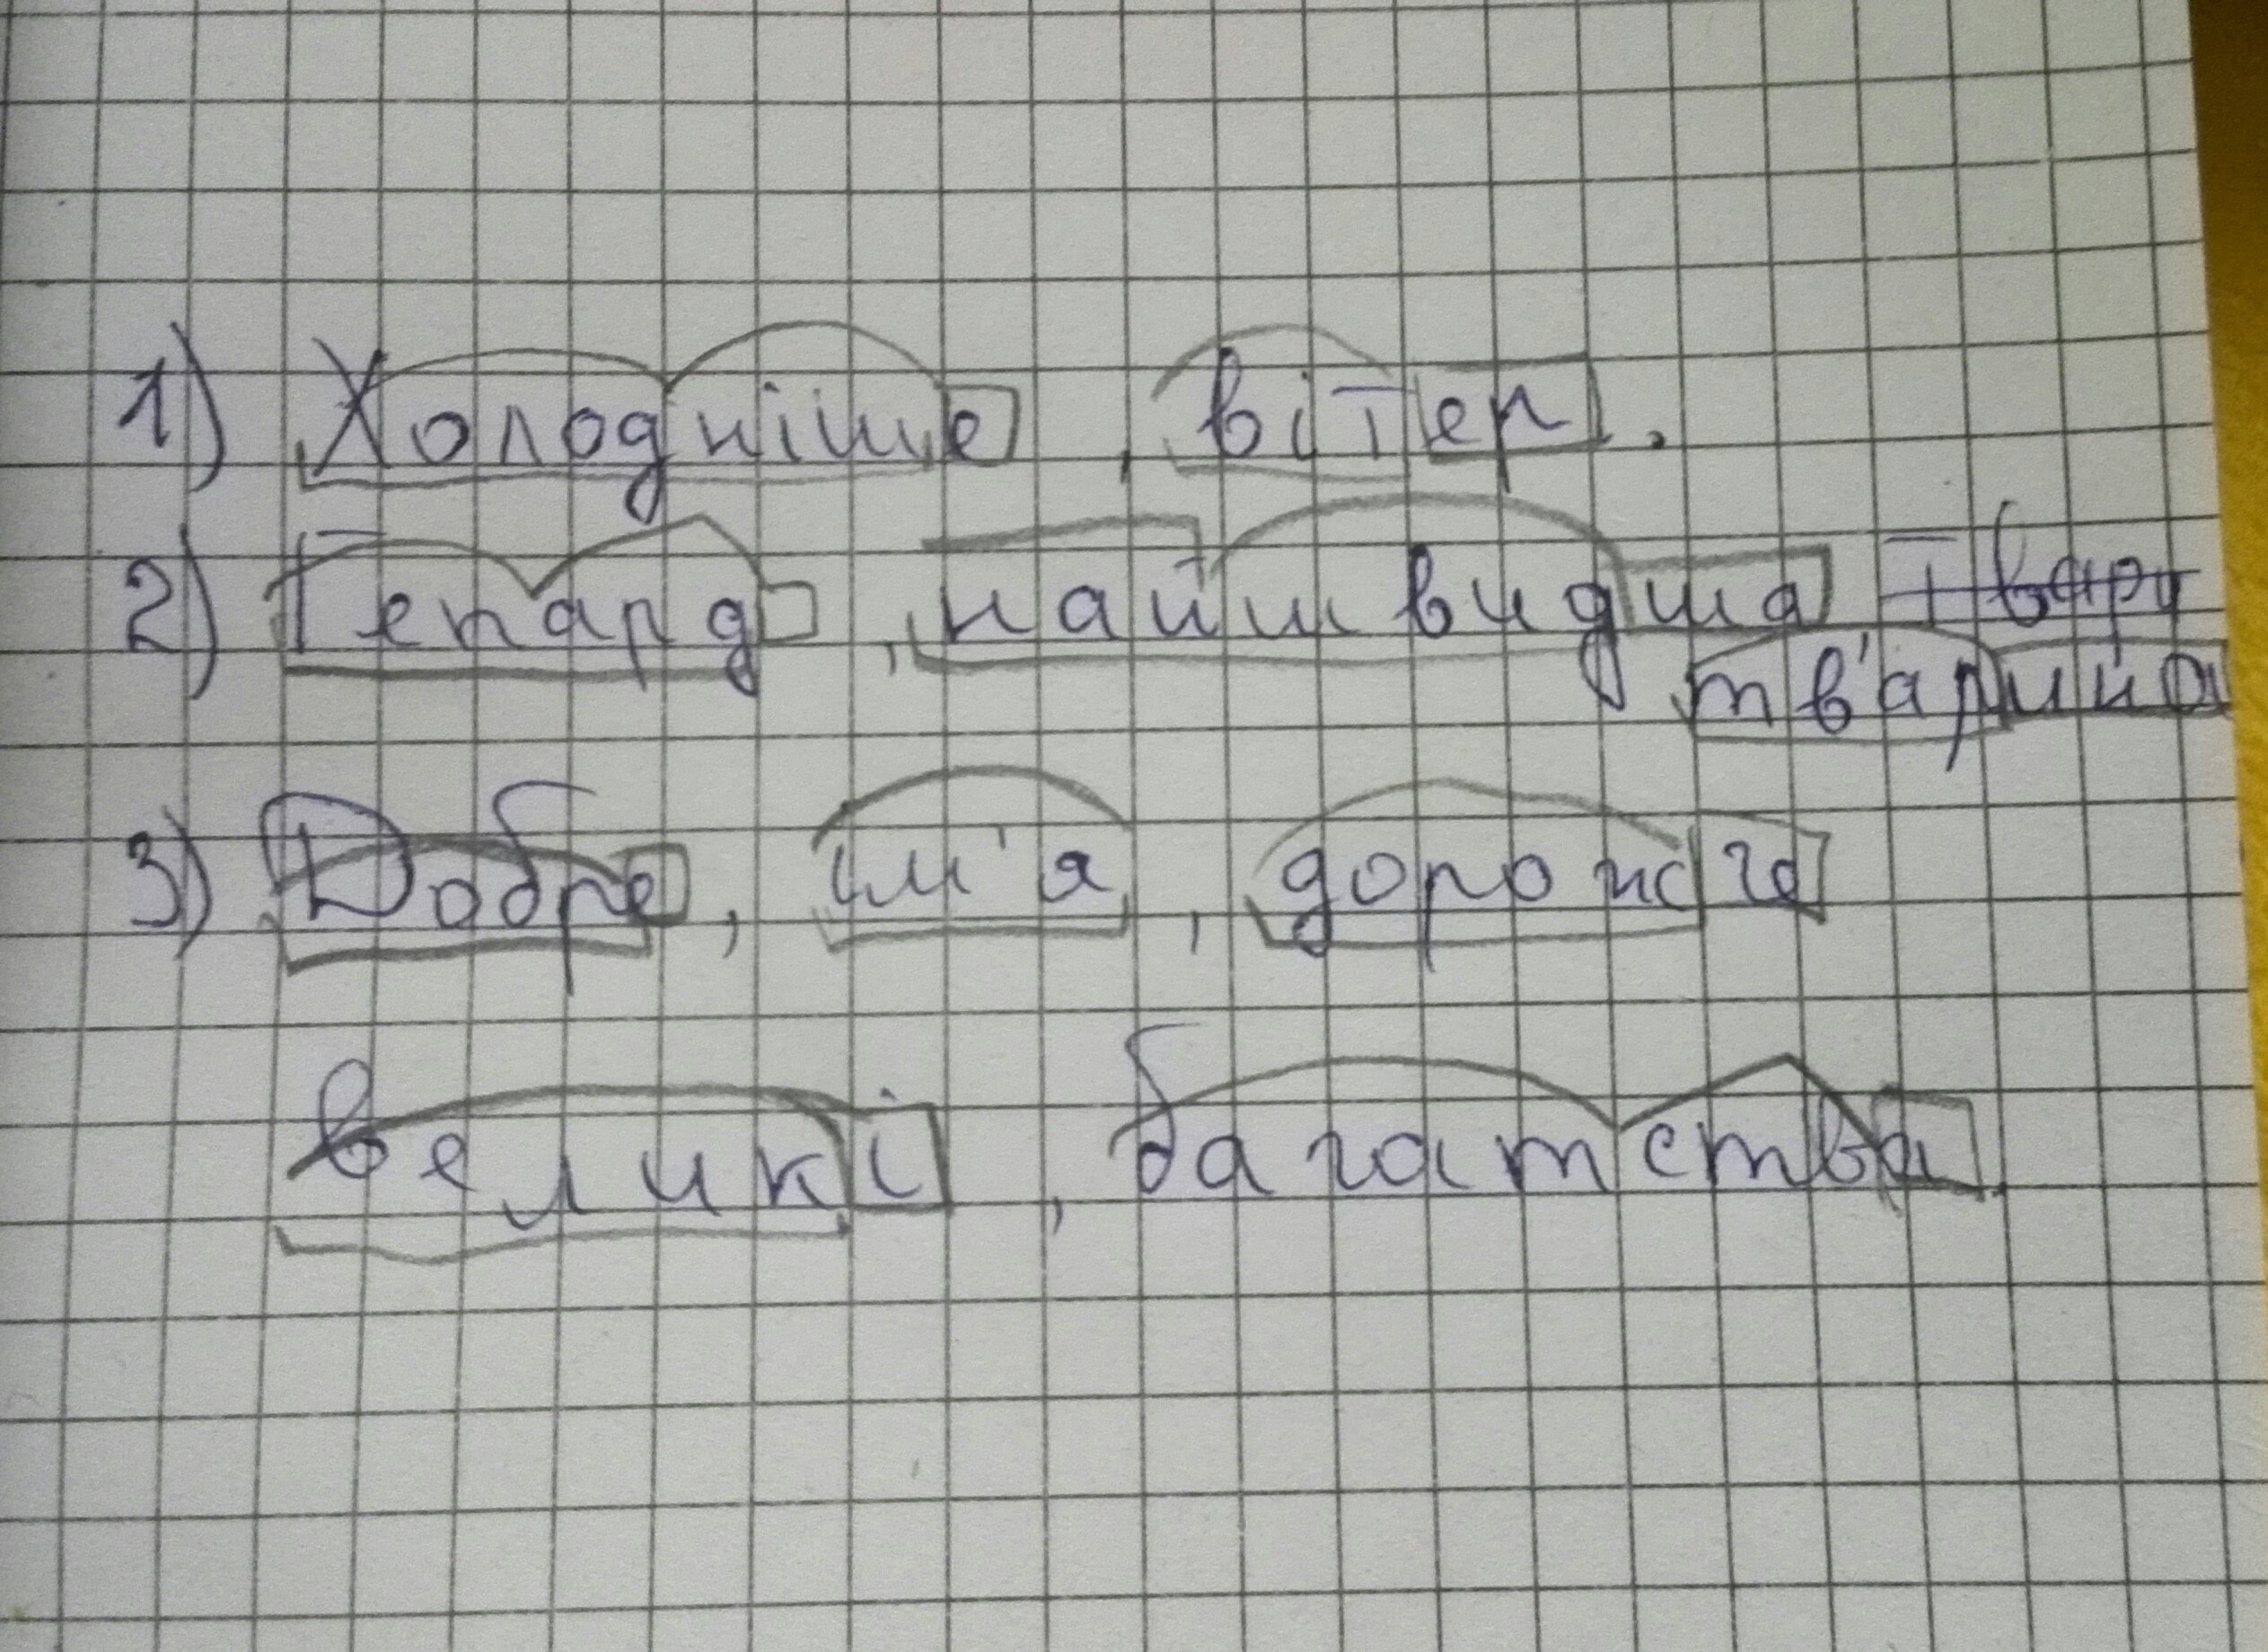 1) Холодніше, вітер.
2) Гепард, найшвидша твари
тв'арина
3) Добре, ім'я, дорожче
великі, багатства.